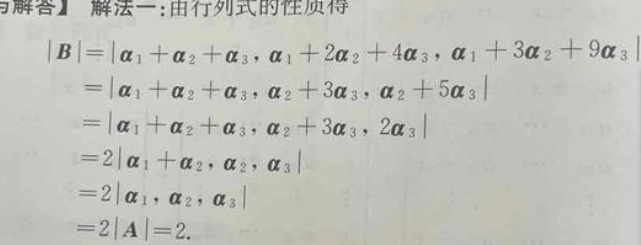 与解答】 解法一:由行列式的性质得
|B|=|α₁+α₂+α₃, α₁+2α₂+4α₃, α₁+3α₂+9α₃|
=|α₁+α₂+α₃, α₂+3α₃, α₂+5α₃|
=|α₁+α₂+α₃, α₂+3α₃, 2α₃|
=2|α₁+α₂, α₂, α₃|
=2|α₁, α₂, α₃|
=2|A|=2.